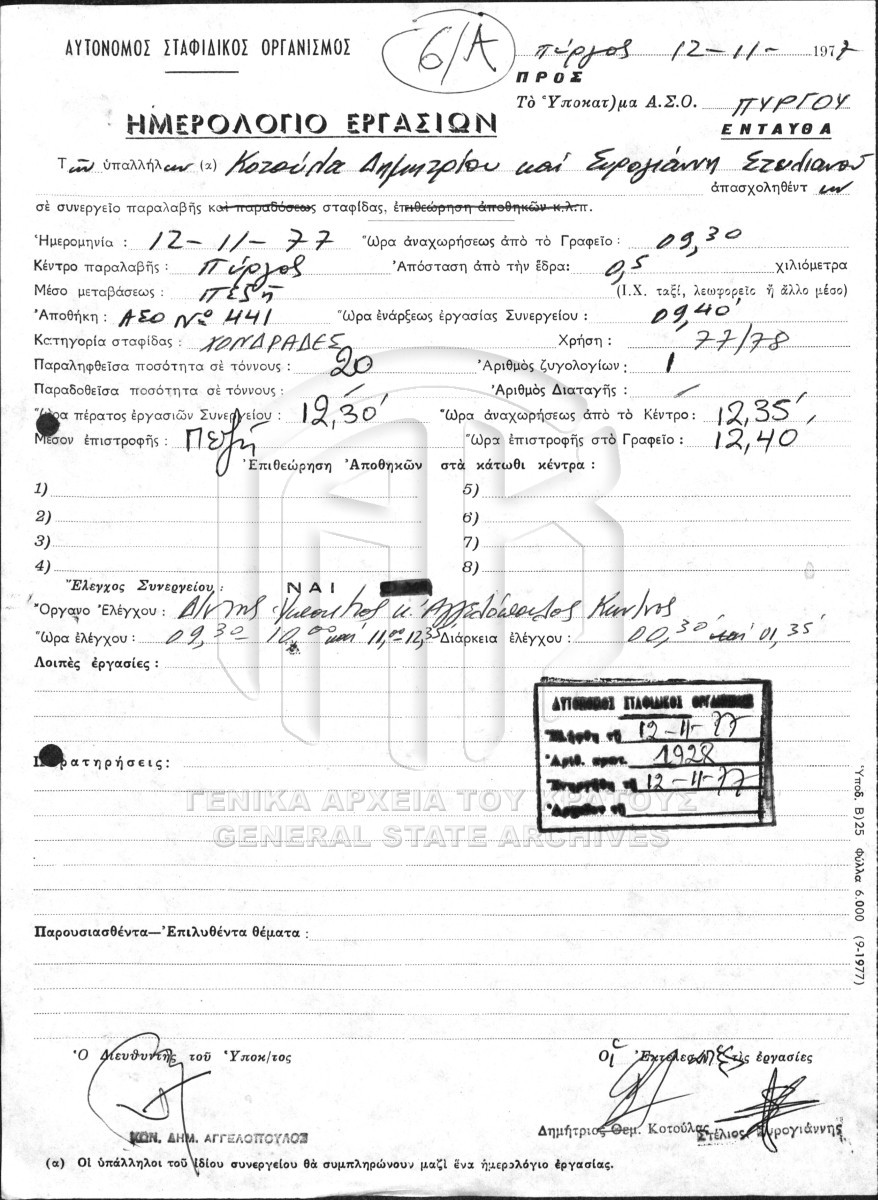 ΑΥΤΟΝΟΜΟΣ ΣΤΑΦΙΔΙΚΟΣ ΟΡΓΑΝΙΣΜΟΣ
6/Α
Πύργος 12-11- 1977
ΠΡΟΣ
Τὸ Ὑποκατ)μα Α.Σ.Ο. ΠΥΡΓΟΥ
ΕΝΤΑΥΘΑ
ΗΜΕΡΟΛΟΓΙΟ ΕΡΓΑΣΙΩΝ
Τῶν ὑπαλλήλων (α) Κοτούλα Δημητρίου καί Συρογιάννη Στυλιανοῦ
ἀπασχοληθέντων
σὲ συνεργεῖο παραλαβῆς καὶ παραδόσεως σταφίδας, ἐπιθεώρηση ἀποθηκῶν κ.λ.π.
Ἡμερομηνία : 12-11-77 Ὥρα ἀναχωρήσεως ἀπὸ τὸ Γραφεῖο : 09,30
Κέντρο παραλαβῆς : Πύργος Ἀπόσταση ἀπὸ τὴν ἕδρα: 0,5 χιλιόμετρα
Μέσο μεταβάσεως : πεζῆ (Ι.Χ. ταξί, λεωφορεῖο ἢ ἄλλο μέσο)
Ἀποθήκη : ΑΣΟ Νο 441 Ὥρα ἐνάρξεως ἐργασίας Συνεργείου : 09,40
Κατηγορία σταφίδας : ΧΟΝΔΡΑΔΕΣ Χρήση : 77/78
Παραληφθεῖσα ποσότητα σὲ τόννους : 20 Ἀριθμὸς ζυγολογίων : 1
Παραδοθεῖσα ποσότητα σὲ τόννους : / Ἀριθμὸς Διαταγῆς : /
Ὥρα πέρατος ἐργασιῶν Συνεργείου : 12,30 Ὥρα ἀναχωρήσεως ἀπὸ τὸ Κέντρο: 12,35
Μέσον ἐπιστροφῆς : Πεζῆ Ὥρα ἐπιστροφῆς στὸ Γραφεῖο : 12,40
Ἐπιθεώρηση Ἀποθηκῶν στὰ κάτωθι κέντρα :
1) 5)
2) 6)
3) 7)
4) 8)
Ἔλεγχος Συνεργείου : ΝΑΙ
Ὄργανο Ἐλέγχου : Δ/ντης Ἀγγελόπουλος Κων/νος
Ὥρα ἐλέγχου : 09,30-10,00 καί 11,00-12,35 Διάρκεια ἐλέγχου : 00,30 καί 01,35
Λοιπὲς ἐργασίες :
ΑΥΤΟΝΟΜΟΣ ΣΤΑΦΙΔΙΚΟΣ ΟΡΓΑΝΙΣΜΟΣ
Ἐλήφθη τῇ 12-11-77
Ἀριθ. πρωτ. 1928
Ἐνηργήθη τῇ 12-11-77
Ἀρχεῖον τῇ
Παρατηρήσεις :
ΓΕΝΙΚΑ ΑΡΧΕΙΑ ΤΟΥ ΚΡΑΤΟΥΣ
GENERAL STATE ARCHIVES
Ὑποδ. Β)25 Φύλλα 6.000 (9-1977)
Παρουσιασθέντα—Ἐπιλυθέντα θέματα :
Ὁ Διευθυντὴς τοῦ Ὑποκ/τος Οἱ Ἐκτελεσ τὶς ἐργασίες
ΚΩΝ. ΔΗΜ. ΑΓΓΕΛΟΠΟΥΛΟΣ Δημήτριος Θεμ. Κοτούλας Στέλιος Συρογιάννης
(α) Οἱ ὑπάλληλοι τοῦ ἰδίου συνεργείου θὰ συμπληρώνουν μαζὶ ἕνα ἡμερολόγιο ἐργασίας.